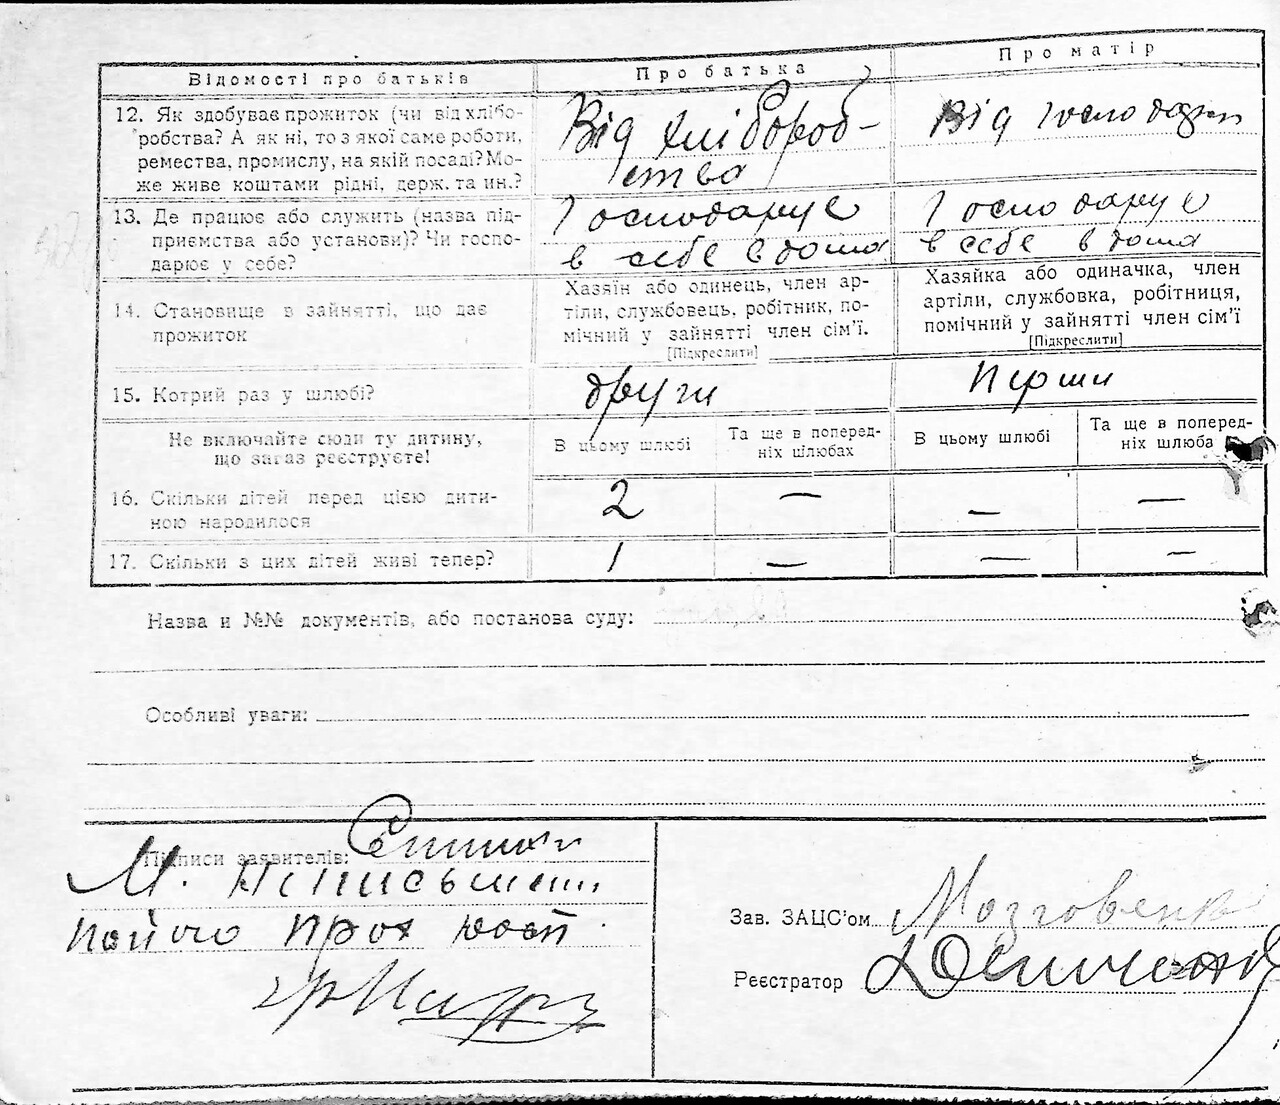 Відомості про батьків
Про батька
Про матір
12. Як здобуває прожиток (чи від хлібо-
робства? А як ні, то з якої саме роботи,
ремества, промислу, на якій посаді? Мо-
же живе коштами рідні, держ. та ин.?
Від хлібороб-
ства
Від
13. Де працює або служить (назва під-
приємства або установи)? Чи госпо-
дарює у себе?
Господарує
в себе вдома
Господарує
в себе вдома
14. Становище в зайнятті, що дає
прожиток
Хазяїн або одинець, член ар-
тіли, службовець, робітник, по-
мічний у зайнятті член сім'ї.
[Підкреслити]
Хазяйка або одиначка, член
артіли, службовка, робітниця,
помічний у зайнятті член сім'ї
[Підкреслити]
15. Котрий раз у шлюбі?
други
перши
Не включайте сюди ту дитину,
що зараз реєструєте!
В цьому шлюбі
Та ще в поперед-
ніх шлюбах
В цьому шлюбі
Та ще в поперед-
ніх шлюба
16. Скільки дітей перед цією дити-
ною народилося
2
—
—
—
17. Скільки з цих дітей живі тепер?
1
—
—
—
Назва и №№ документів, або постанова суду:
Особливі уваги:
Підписи заявителів:
Зав. ЗАЦС'ом
Реєстратор